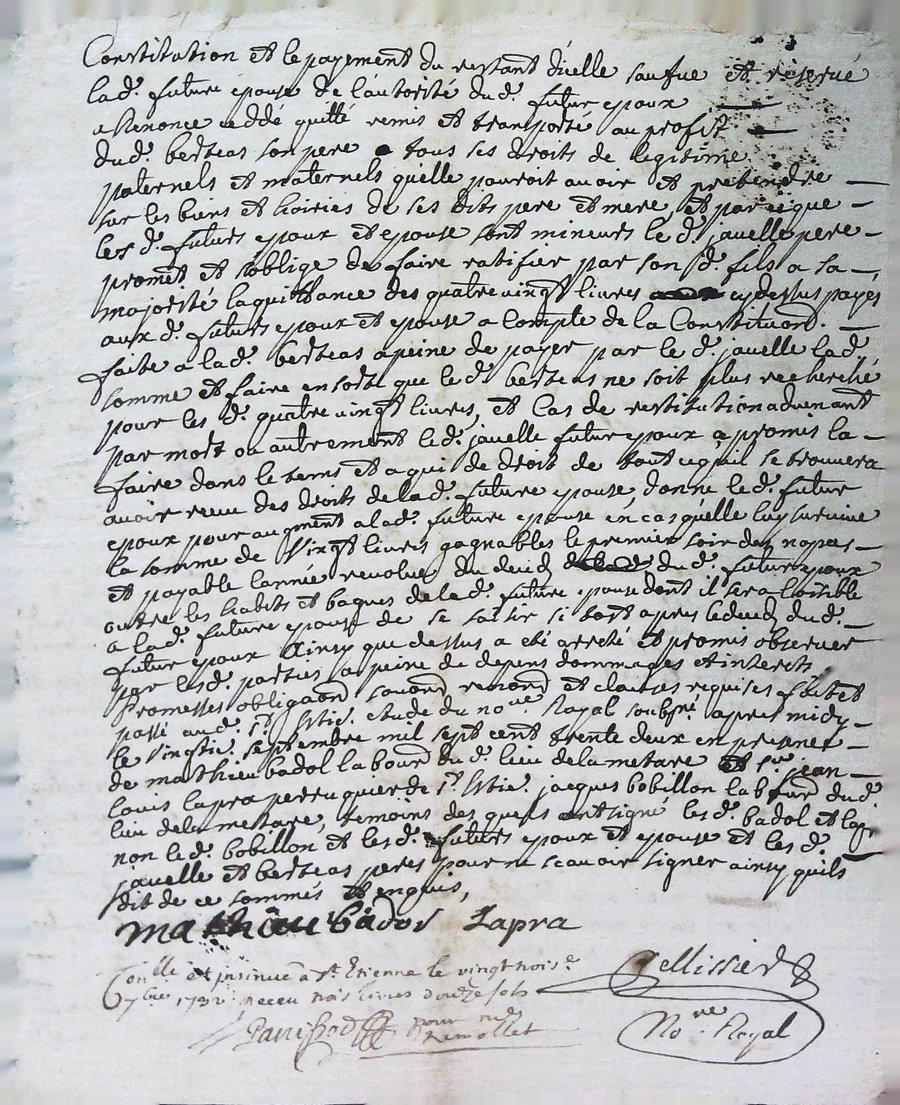 Constitution et le payement du restant d'icelle sauf que et reservé
la d.^e future epouse de l'autorité du d.^t futur epoux
a Renoncé ceddé quitté remis et transporté au profit
du d.^t berteas son pere a tous ses droits de legitime
paternels et maternels qu'elle pouroit avoir et pretendre
sur les biens et hoiries de ses dits pere et mere et parceque
les d.^s futurs epoux et epouse sont mineurs le d.^t javelle pere
promet et s'oblige de faire ratifier par son d.^t fils a sa
majorité la quittance des quatre vingt livres cy dessus payés
aux d.^s futurs epoux et epouse a compte de la Constitution
faite a la d.^e berteas a peine de payer par le d.^t javelle la d.^e
somme et faire en sorte que le d.^t berteas ne soit plus recherché
pour les d.^s quatre vingt livres, et cas de restitution advenant
par mort ou autrement le d.^t javelle futur epoux a promis la
faire dans le tems et a qui de droit de tout ce quil se trouvera
avoir receu des droits de la d.^e future epouse, donne le d.^t futur
epoux pour augment a la d.^e future epouse en cas quelle luy survive
la somme de Vingt livres gagnables le premier soir des nopces
et payable l'année revolue du deceds du d.^t futur epoux
outre les habits et bagues de la d.^e future epouse dont il sera loisible
a la d.^e future epouse de se saisir si tost apres le deceds du d.^t
futur epoux Ainsy que dessus a eté arreté et promis observer
par les d. parties a peine de depens dommages et interets
Promesses obligaon.^s renon.^s et clauses requises fait et
passé au d.^t S.^t Etie.^ne etude du no.^re Royal soub.^né apres midy
le Vingtie.^e septembre mil sept cent trente deux en presence
de mathieu badol labour.^r du d.^t lieu de la metare et s.^r jean
louis lapra perruquier de S.^t Etie.^ne jacques bobillon labour.^r du d.^t
lieu de la metare, temoins des quels ont signé les d.^s badol et lapra
non le d.^t bobillon et les d.^s futurs epoux et epouse et les d.^s
javelle et berteas peres pour ne scavoir signer ainsy quils
ont dit de ce sommés et enquis,
mathieu badol Lapra
Con.^lle et insinué a S.^t Etienne le vingt trois.^e
7.^bre 1732 receu trois livres douze sols
Pellissier
pour m.^r
No.^re Royal